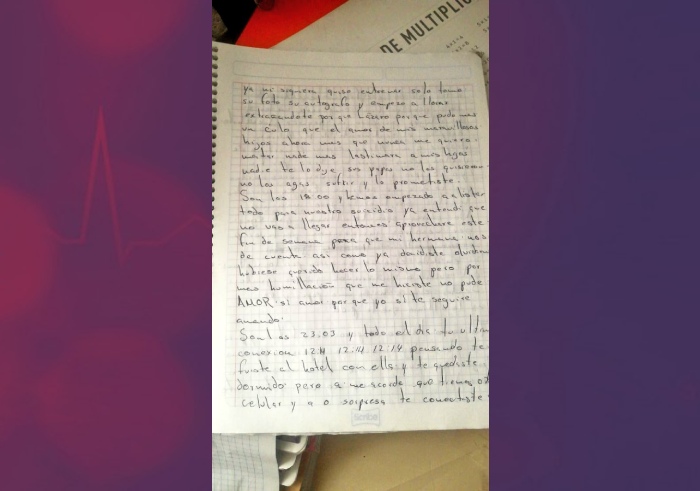 DE MULTIPLIC
ya ni siquiera quiso entrenar solo tomo
su foto su autografo y empezo a llorar
extrañandote por que Lázaro por que pudo mas
un culo que el amor de mis maravillosas
hijas ahora mas que nunca me quiero
matar nadie mas lastimara a mis hijas
nadie te lo dije sus papas no las quisieron
no las agas sufrir y lo prometiste.
Son las 18:00 y hemos empezado a alistar
todo para nuestro suicidio ya entendi que
no vas a llegar entonces aprovechare este
fin de semana para que mi hermana nos
de cuenta asi como ya decidiste olvidarnos
hubiese querido hacer lo mismo pero por
mas humillación que me hiciste no pude
AMOR si amor por que yo si te seguire
amando.
Son las 23:03 y todo el dia tu ultim
conexion 12:11 12:14 12:14 pensando te
fuiste al hotel con ella y te quedaste
dormido pero a me acorde que tienes ot
celular y a o sorpresa te conectaste
Scribe